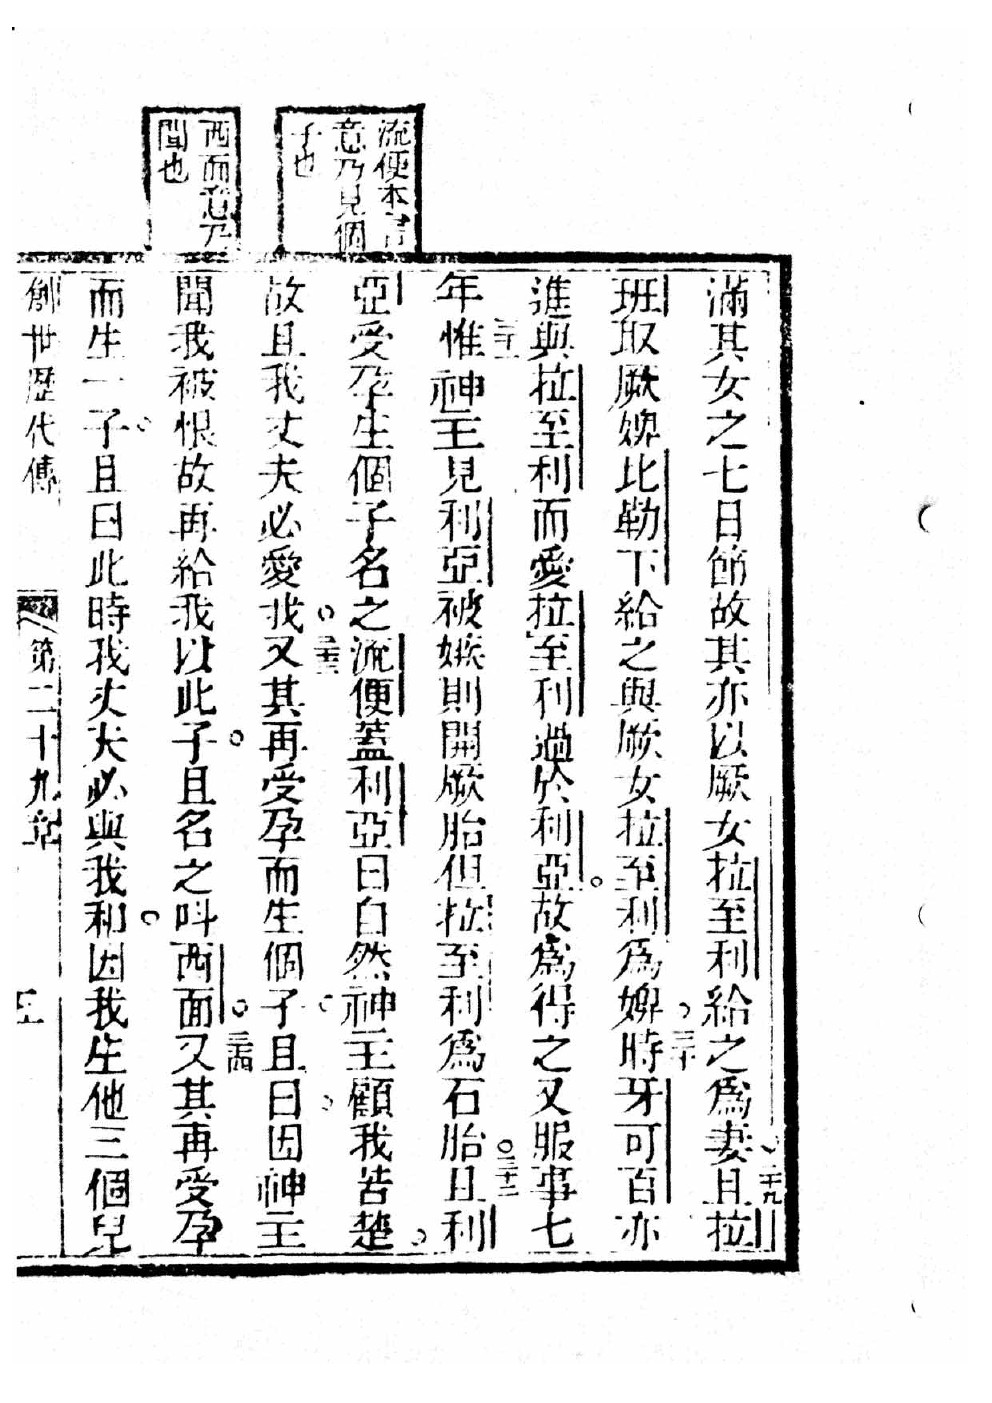 流便本言
意乃見個
子也
西面意乃
聞也
滿其女之七日節故其亦以厥女拉至利給之爲妻○二十九且拉
班取厥婢比勒下給之與厥女拉至利爲婢○三十時牙可百亦
進與拉至利而愛拉至利過於利亞○故爲得之又服事七
年○三十一惟神主見利亞被嫉則開厥胎但拉至利爲石胎○三十二且利
亞受孕生個子名之流便蓋利亞曰自然神主顧我苦楚○
故且我丈夫必愛我○三十三又其再受孕而生個子○且曰○因神主
聞我被恨故再給我以此子○且名之呌西面○三十四又其再受孕
而生一子○且曰此時我丈夫必與我和○因我生他三個兒
創世歷代傳
第二十九章